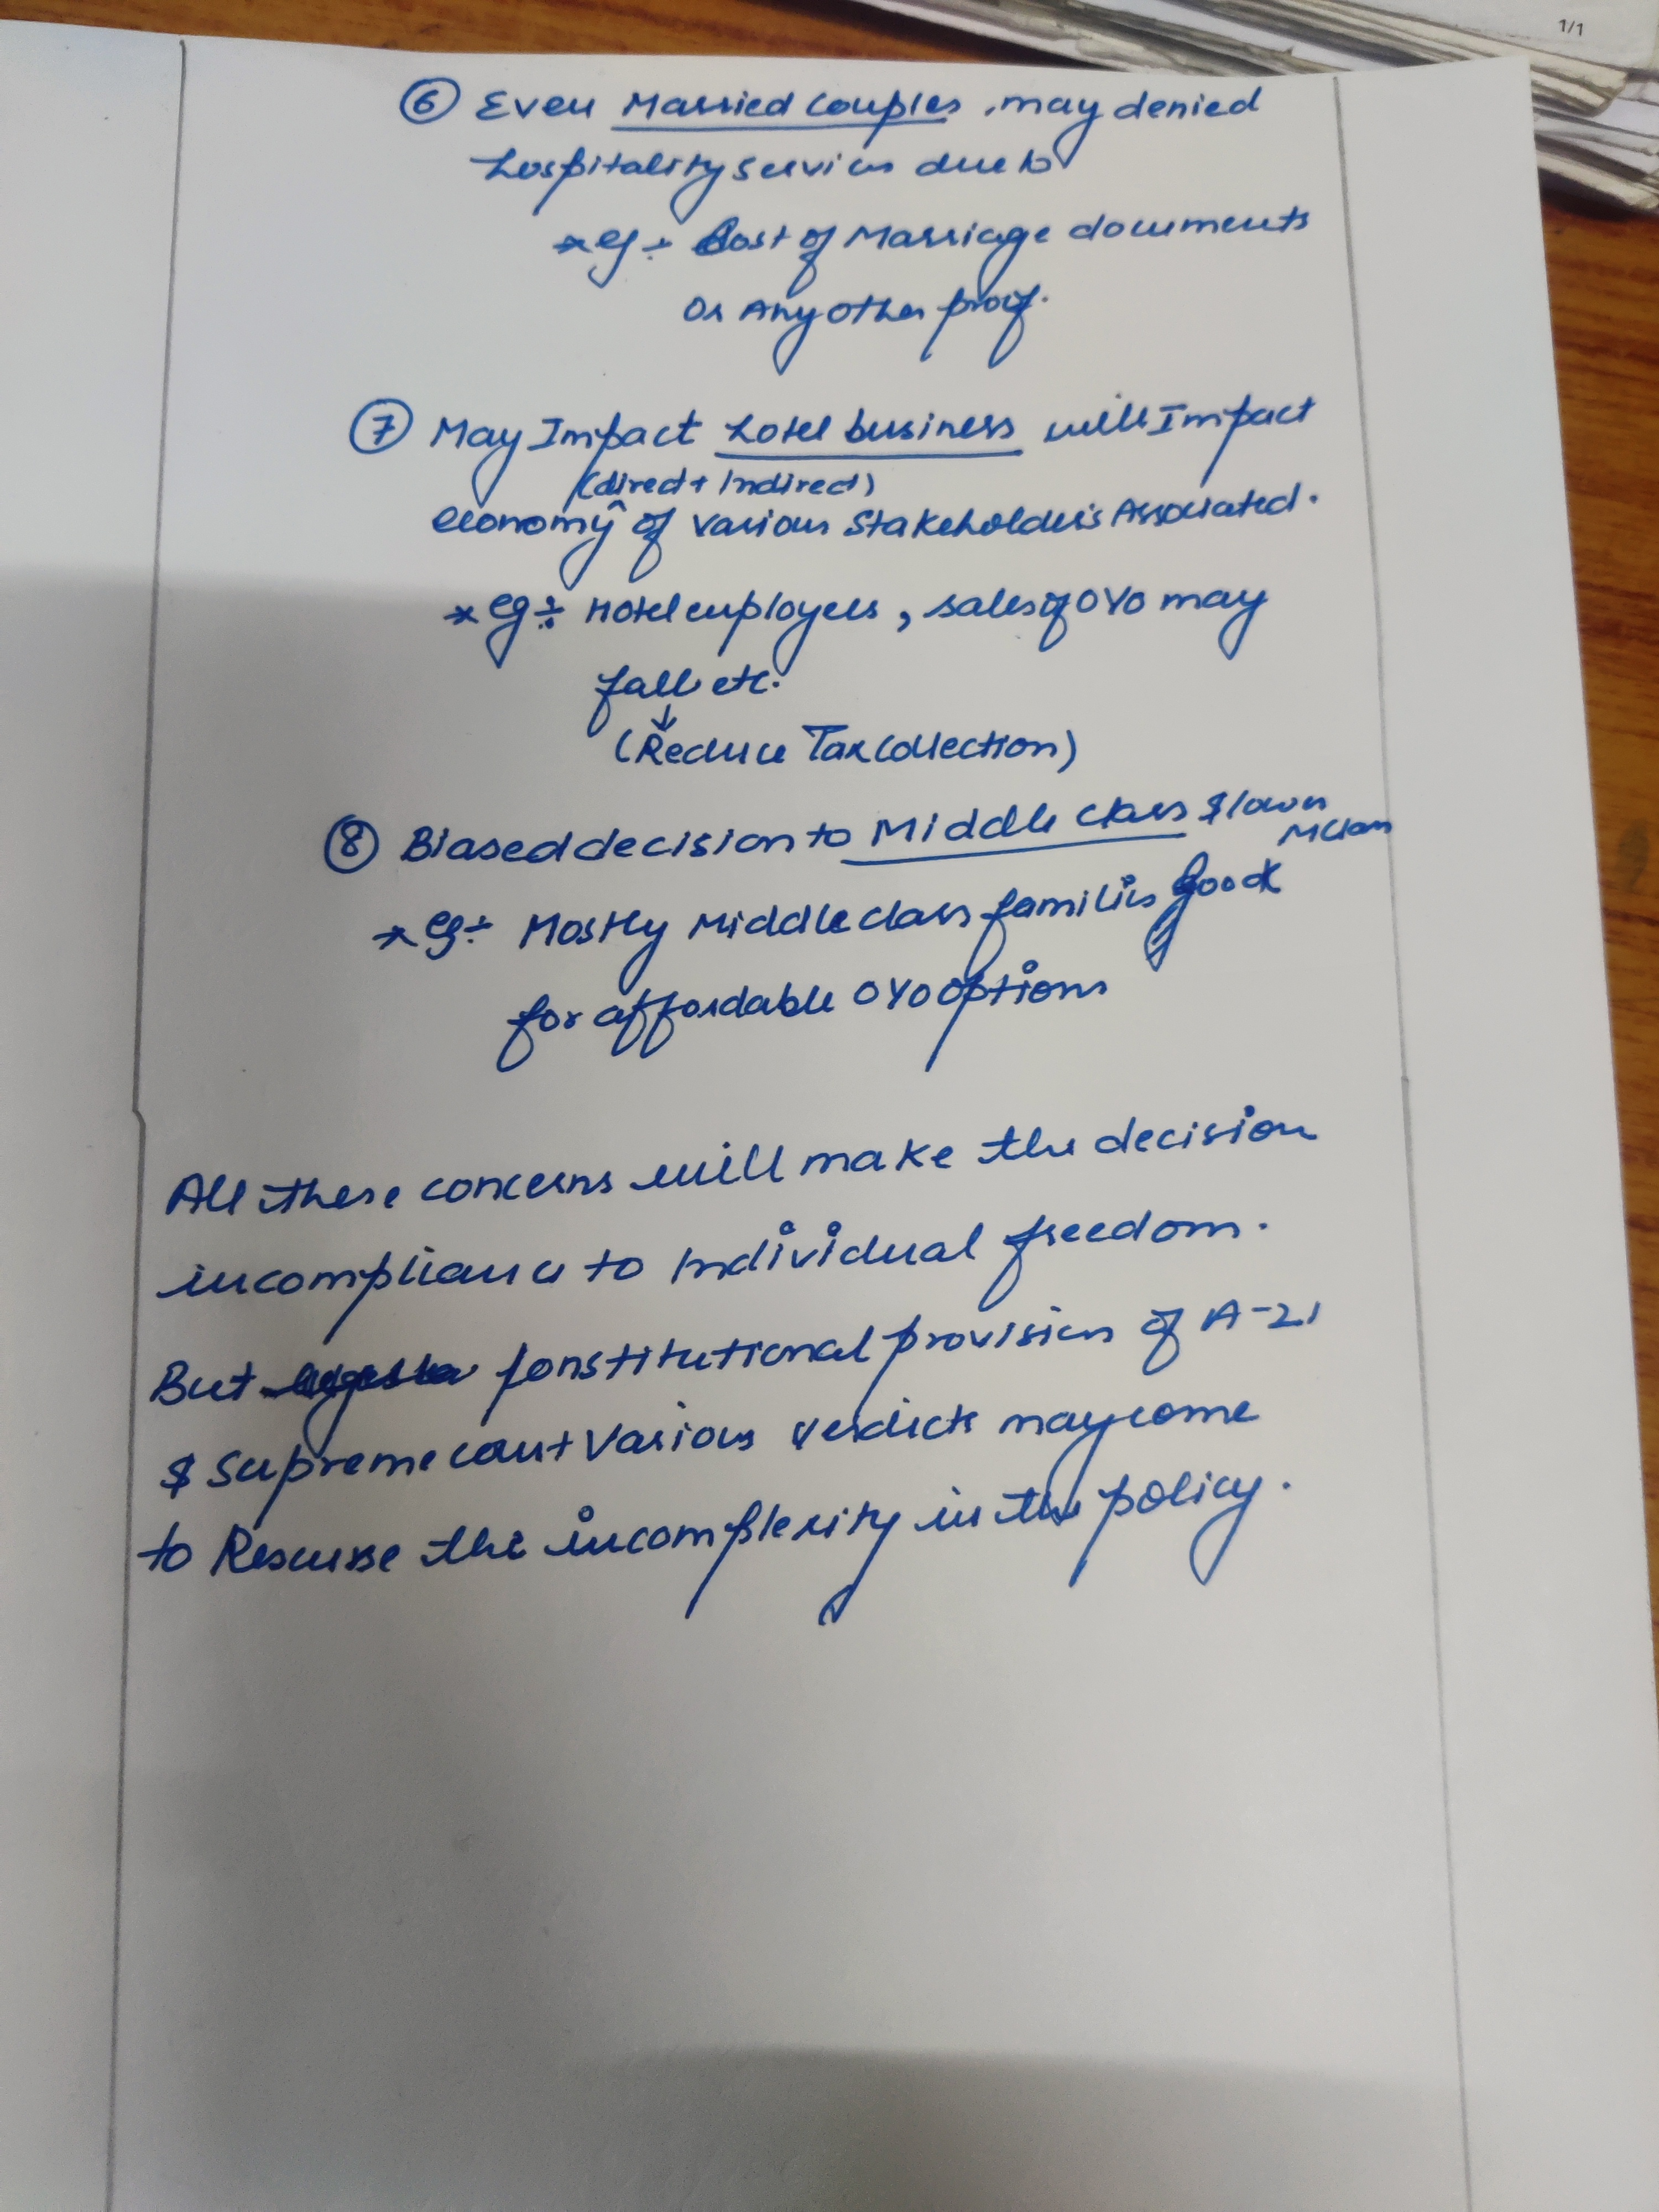 1/1
⑥ Even Married couples, may denied
hospitality services due to
* eg ÷ Lost of Marriage documents
Or Any other proof.
⑦ May Impact hotel business will Impact
(direct + Indirect)
economy ^ of various Stakeholders Associated.
* eg ÷ Hotel employees, sales of OYO may
fall etc.
↓
(Reduce Tax collection)
⑧ Biased decision to Middle class & lower
M class
* eg ÷ Mostly Middle class families good
for affordable OYO options
All these concerns will make the decision
incompliance to Individual freedom.
But Constitutional provision of A-21
& Supreme court various verdicts may come
to Rescue the incomplexity in the policy.